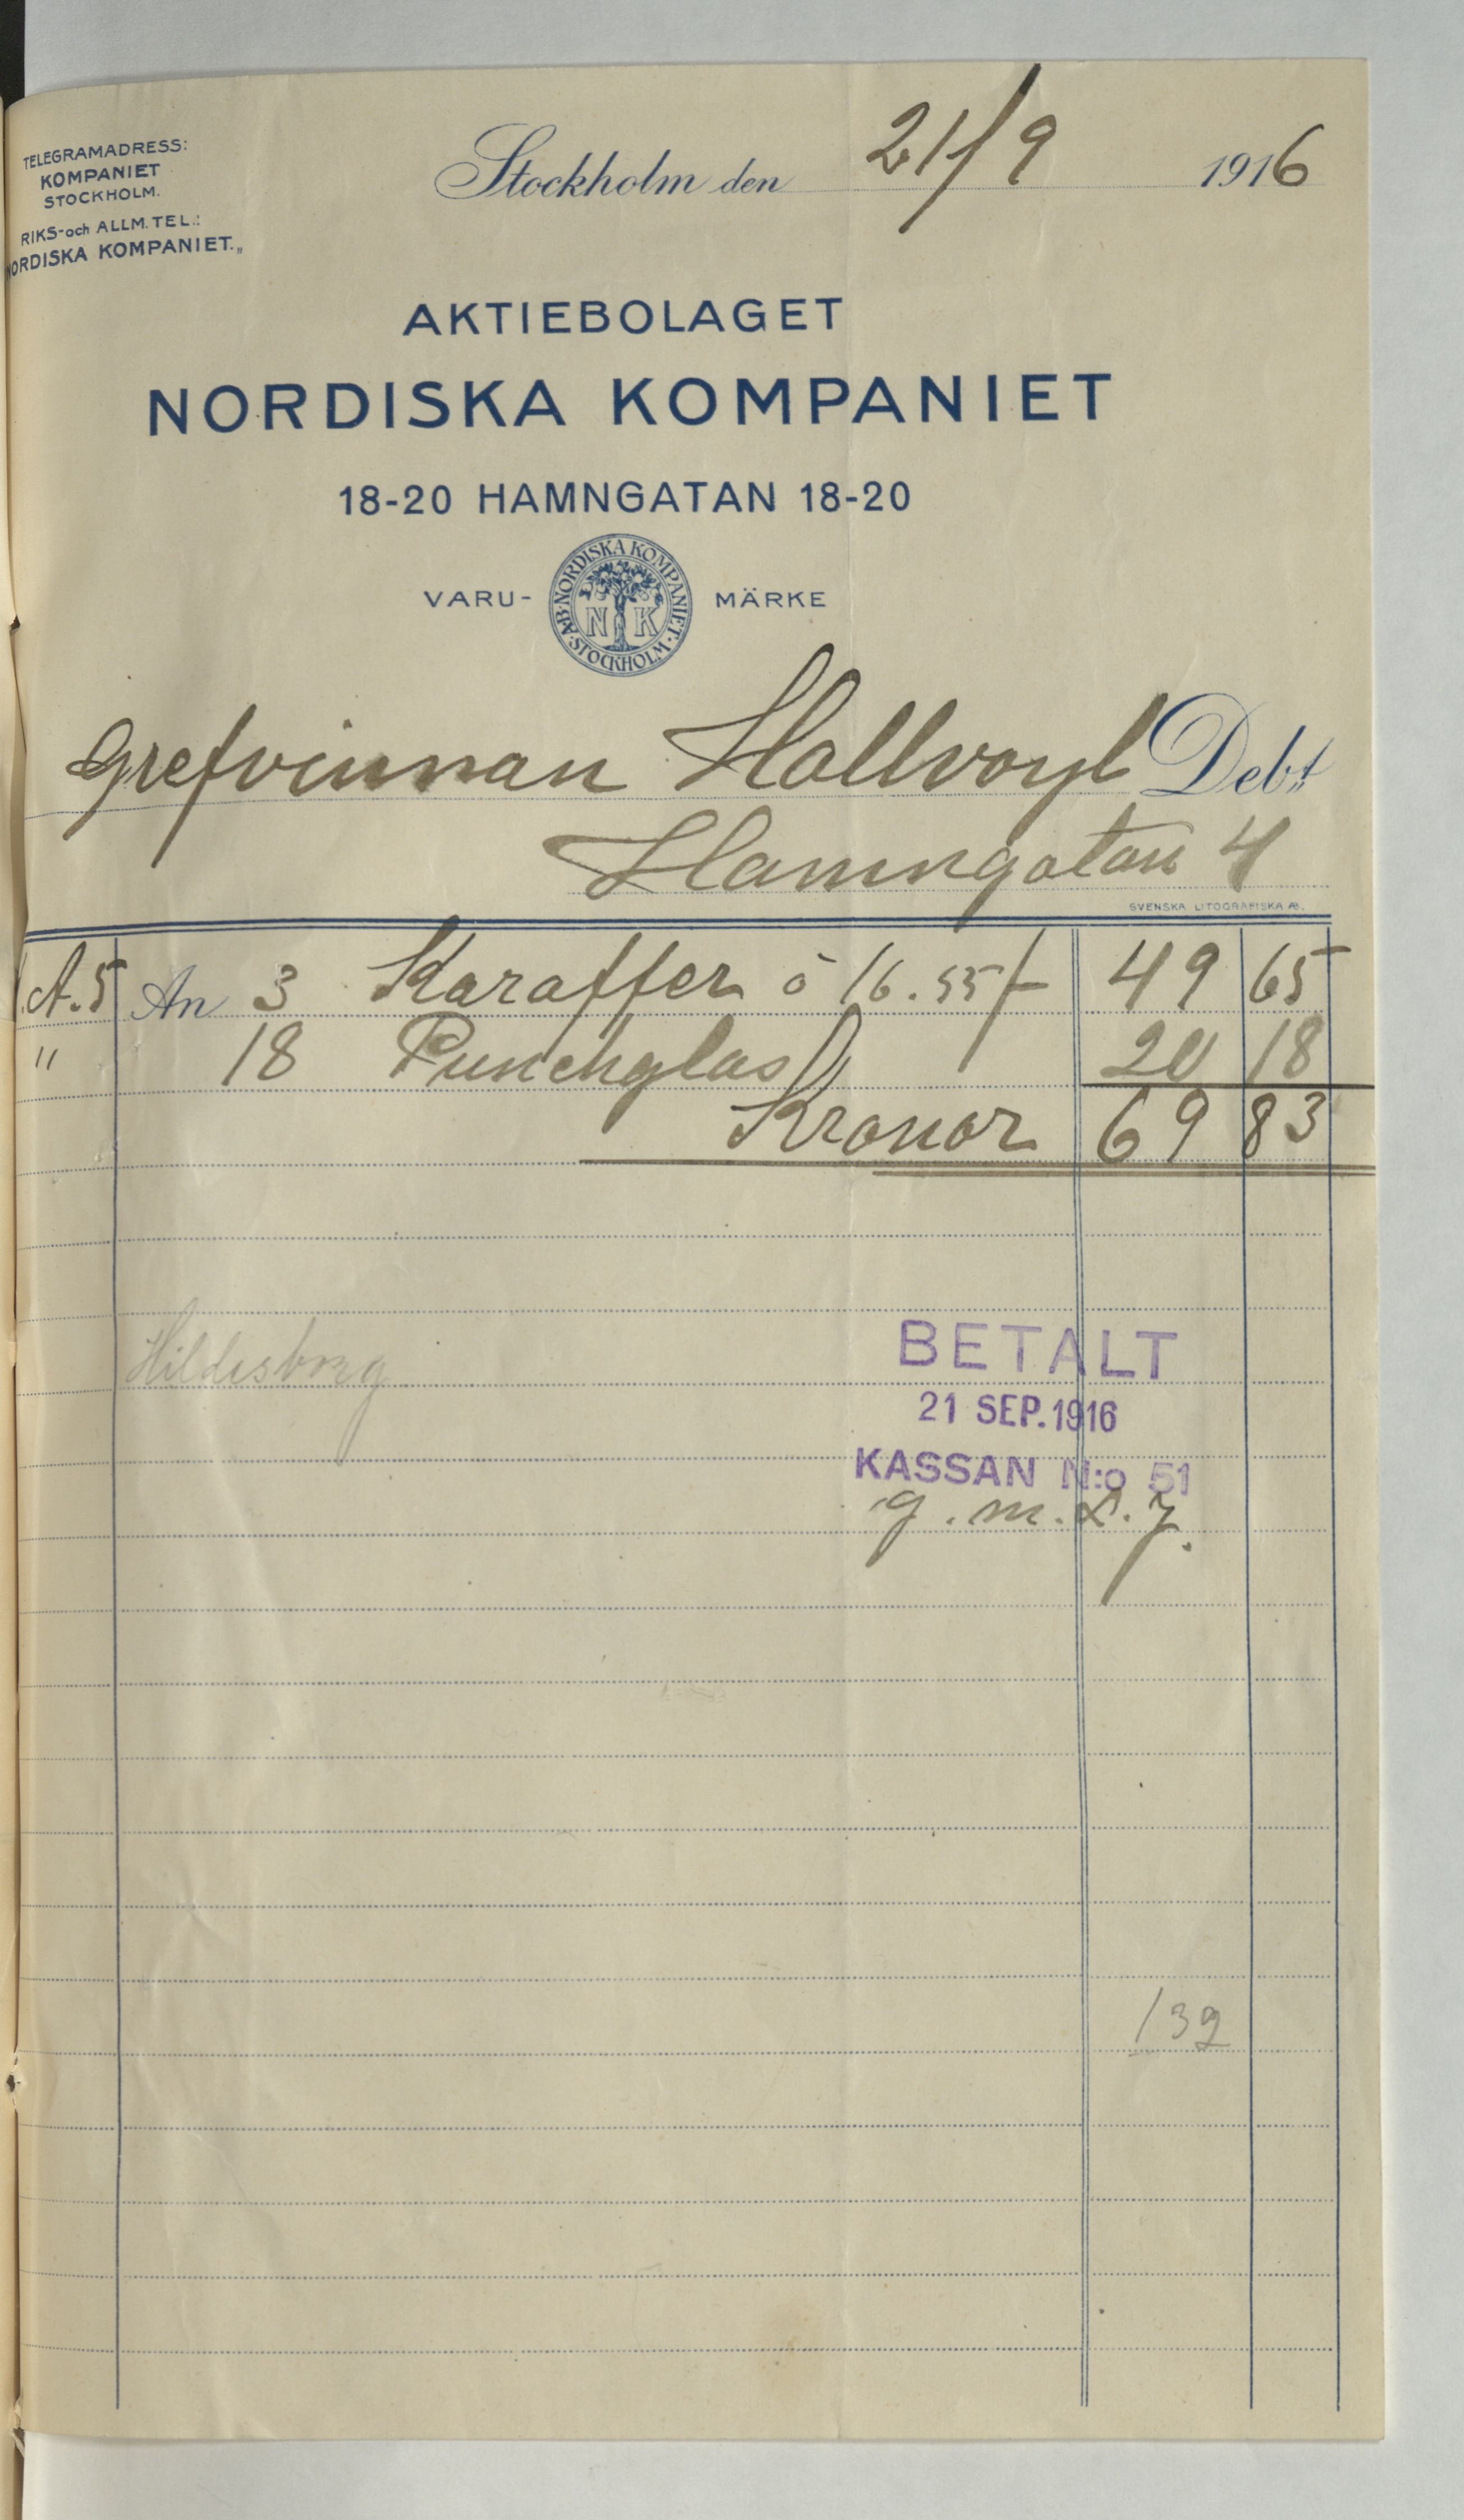 TELEGRAMADRESS:
KOMPANIET
STOCKHOLM.
RIKS-och ALLM. TEL.:
NORDISKA KOMPANIET.„
Stockholm den 21/9 1916
AKTIEBOLAGET
NORDISKA KOMPANIET
18-20 HAMNGATAN 18-20
VARU- MÄRKE
A.B. NORDISKA KOMPANIET. STOCKHOLM
N K
Grefvinnan Hallvoyl Debt
Hamngatan 4
SVENSKA LITOGRAFISKA AB.
A.5 An 3 Karaffer à 16.55 49 65
" 18 Punchglas 20 18
Kronor 69 83
Hildesborg
BETALT
21 SEP. 1916
KASSAN N:o 51
139